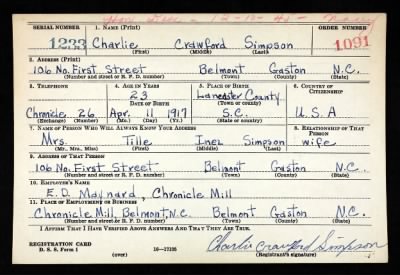 Hon. Disc. - 12-12-41 - Navy
SERIAL NUMBER 1. NAME (Print) ORDER NUMBER
1233 Charlie Crawford Simpson 1091
(First) (Middle) (Last)
2. ADDRESS (Print)
106 No. First Street Belmont Gaston N.C.
(Number and street or R. F. D. number) (Town) (County) (State)
3. TELEPHONE 4. AGE IN YEARS 5. PLACE OF BIRTH 6. COUNTRY OF CITIZENSHIP
23 Lancaster County
DATE OF BIRTH (Town or county)
Chronicle 26 Apr. 11 1917 S.C. U.S.A
(Exchange) (Number) (Mo.) (Day) (Yr.) (State or country)
7. NAME OF PERSON WHO WILL ALWAYS KNOW YOUR ADDRESS 8. RELATIONSHIP OF THAT PERSON
Mrs. Tille Inez Simpson wife
(Mr., Mrs., Miss) (First) (Middle) (Last)
9. ADDRESS OF THAT PERSON
106 No. First Street Belmont Gaston N.C.
(Number and street or R. F. D. number) (Town) (County) (State)
10. EMPLOYER'S NAME
E.D. Maynard, Chronicle Mill
11. PLACE OF EMPLOYMENT OR BUSINESS
Chronicle Mill, Belmont, N.C. Belmont Gaston N.C.
(Number and street or R. F. D. number) (Town) (County) (State)
I AFFIRM THAT I HAVE VERIFIED ABOVE ANSWERS AND THAT THEY ARE TRUE.
REGISTRATION CARD
D. S. S. Form 1 (over) 16-17105 Charlie Crawford Simpson
(Registrant's signature)